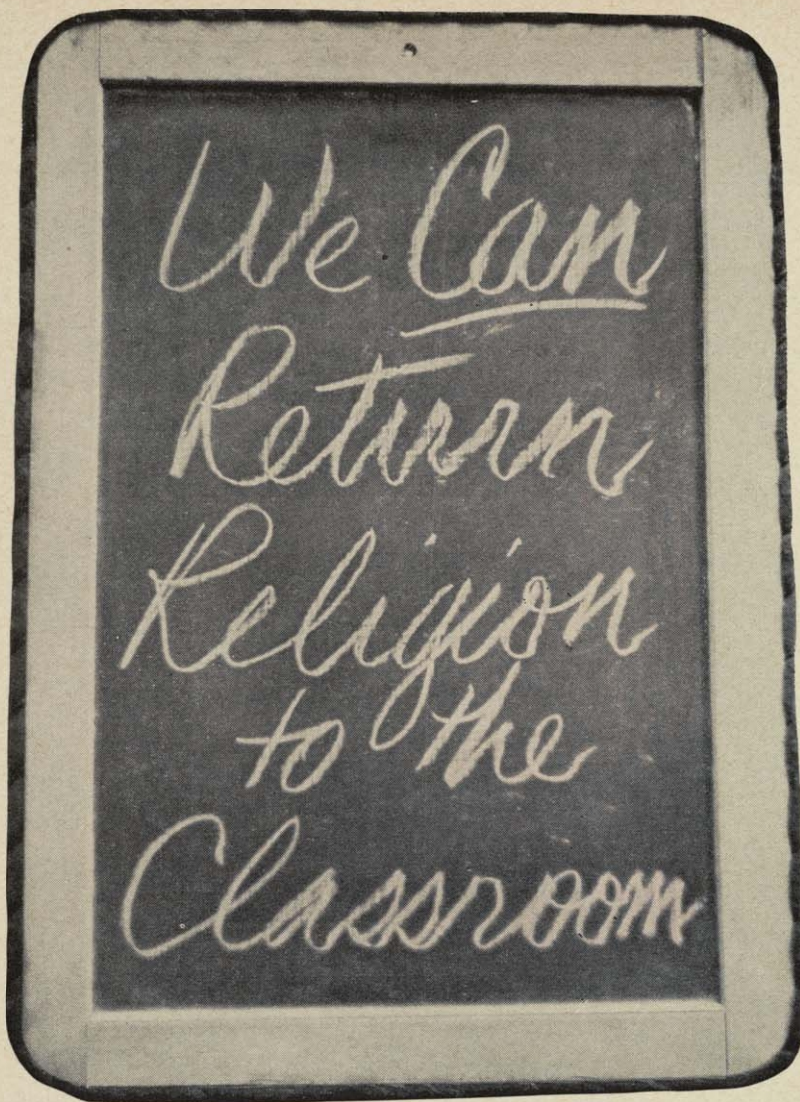 We Can
Return
Religion
to the
Classroom